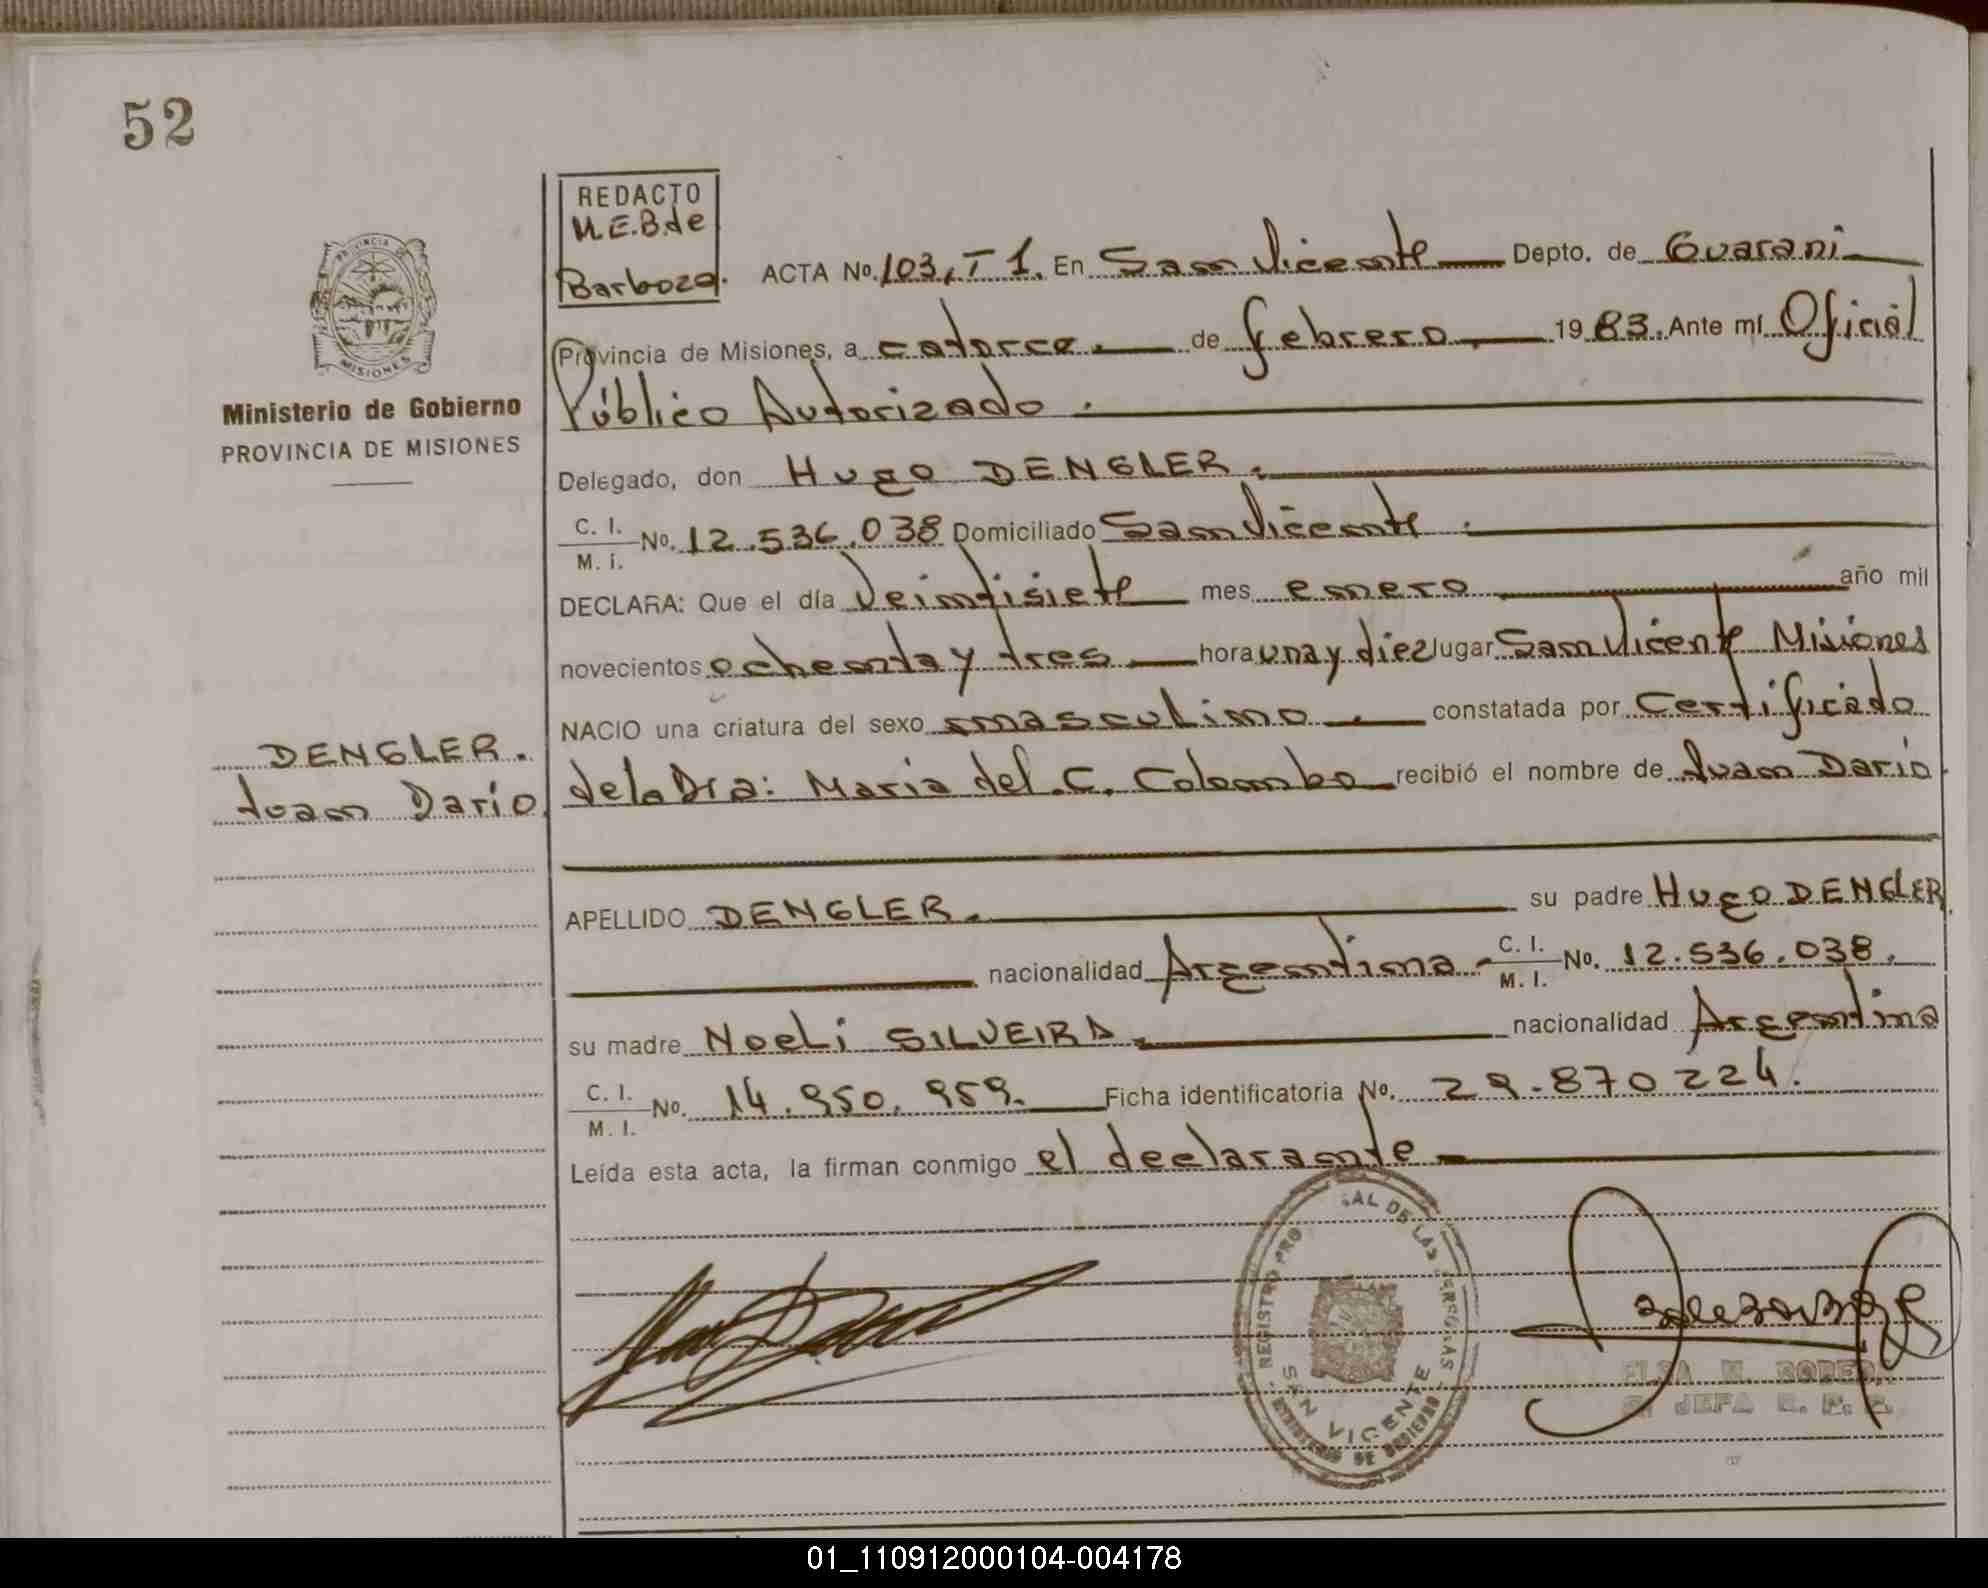 52
REDACTO
M.E.B.de
Barboza.
ACTA No. 103, T 1. En San Vicente Depto. de Guarani
Provincia de Misiones, a catorce. de febrero 1983. Ante mí Oficial
Público Autorizado.
Delegado, don Hugo DENGLER.
C. I.
M. I. No. 12.536.038 Domiciliado San Vicente.
DECLARA: Que el día Veintisiete mes enero año mil
novecientos ochenta y tres hora una y diez lugar San Vicente Misiones
NACIO una criatura del sexo masculino. constatada por Certificado
de la Dra: Maria del C. Colombo recibió el nombre de Juan Darío
APELLIDO DENGLER. su padre Hugo DENGLER
nacionalidad Argentina - C. I.
M. I. No. 12.536.038.
su madre Noeli SILVEIRA. nacionalidad Argentina
C. I.
M. I. No. 14.950.959. Ficha identificatoria No. 29.870224.
Leída esta acta, la firman conmigo el declarante
PROVINCIA DE
MISIONES
Ministerio de Gobierno
PROVINCIA DE MISIONES
DENGLER.
Juan Darío.
REGISTRO PRO AL DE LAS PERSONAS
SAN VICENTE
MINISTERIO DE GOBIERNO
ELSA M.
JEFA R. P. P.
01_110912000104-004178